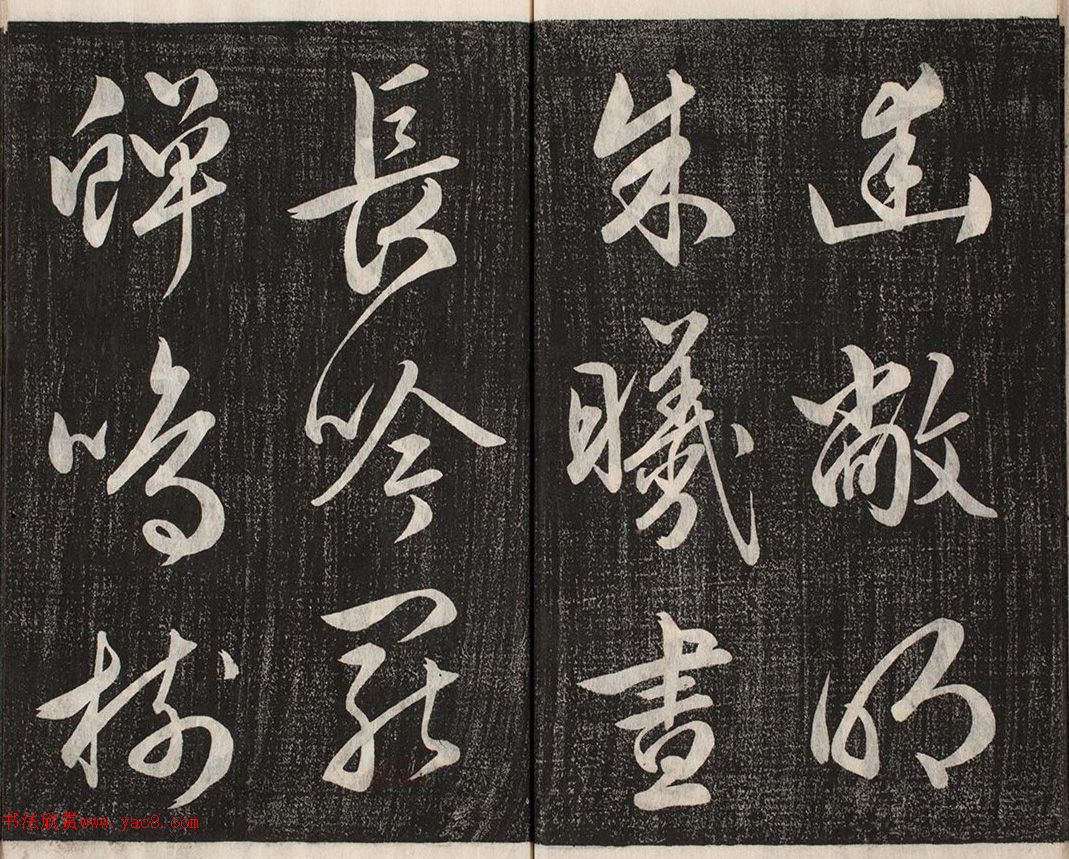 幽敞明
朱曦晝
長吟罷
蟬鳴樹
书法欣赏www.yac8.com